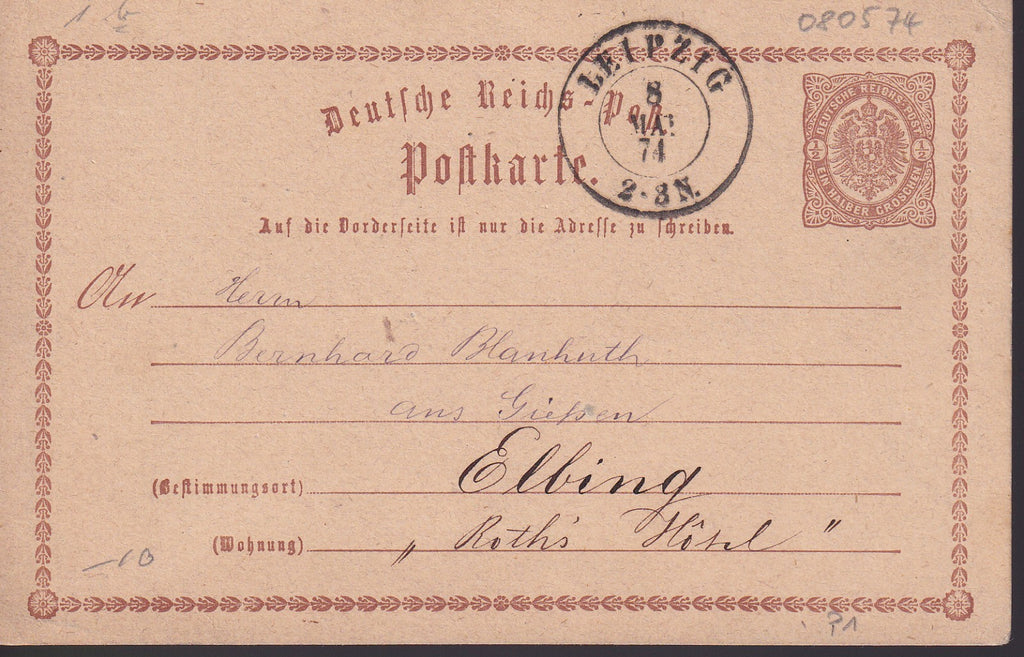 1 b
080574
LEIPZIG
8
MAI
74
2-8 N.
Deutsche Reichs-Post
Postkarte.
DEUTSCHE REICHS-POST
1/2 1/2
EIN HALBER GROSCHEN
Auf die Vorderseite ist nur die Adresse zu schreiben.
An Herrn
Bernhard Blanhuth
aus Gießen
(Bestimmungsort) Elbing
(Wohnung) „ Roth's Hôtel "
-10
P1